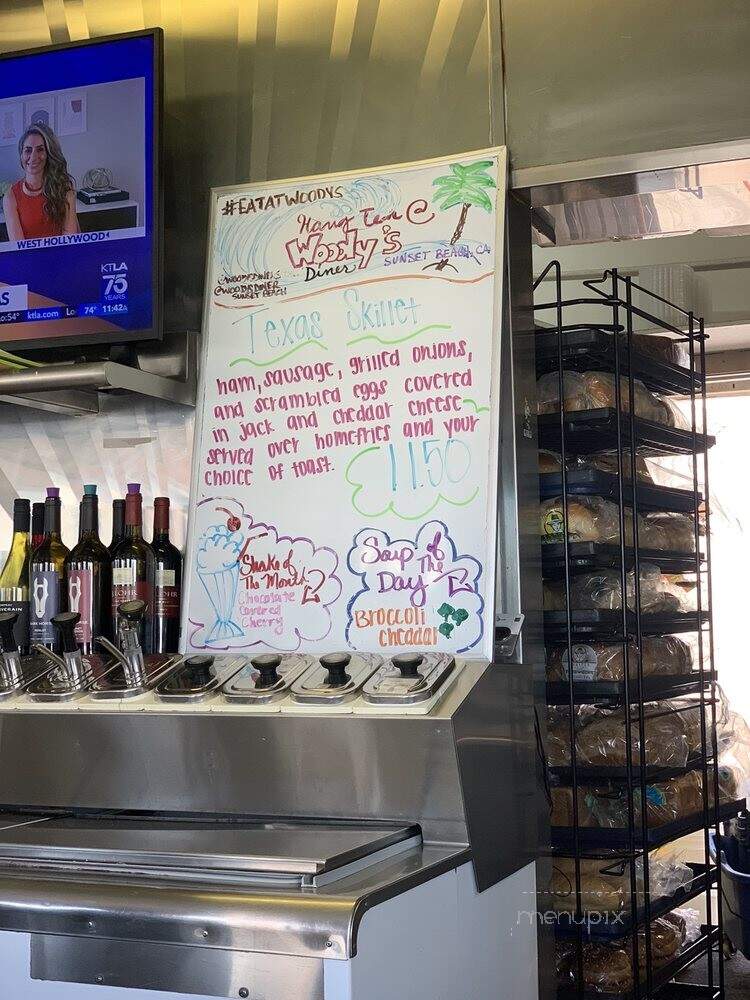 #EATATWOODYS
Hang Ten @
Woody's
Diner
SUNSET BEACH, CA
@WOODYSDINER
SUNSET BEACH
Texas Skillet
ham, sausage, grilled onions,
and scrambled eggs covered
in jack and cheddar cheese
served over homefries and your
choice of toast.
11.50
Shake of
The Month
Chocolate
Covered
Cherry
Soup of
The
Day
Broccoli
cheddar
WEST HOLLYWOOD
KTLA
75
YEARS
ktla.com
74°
11:42A
menupix